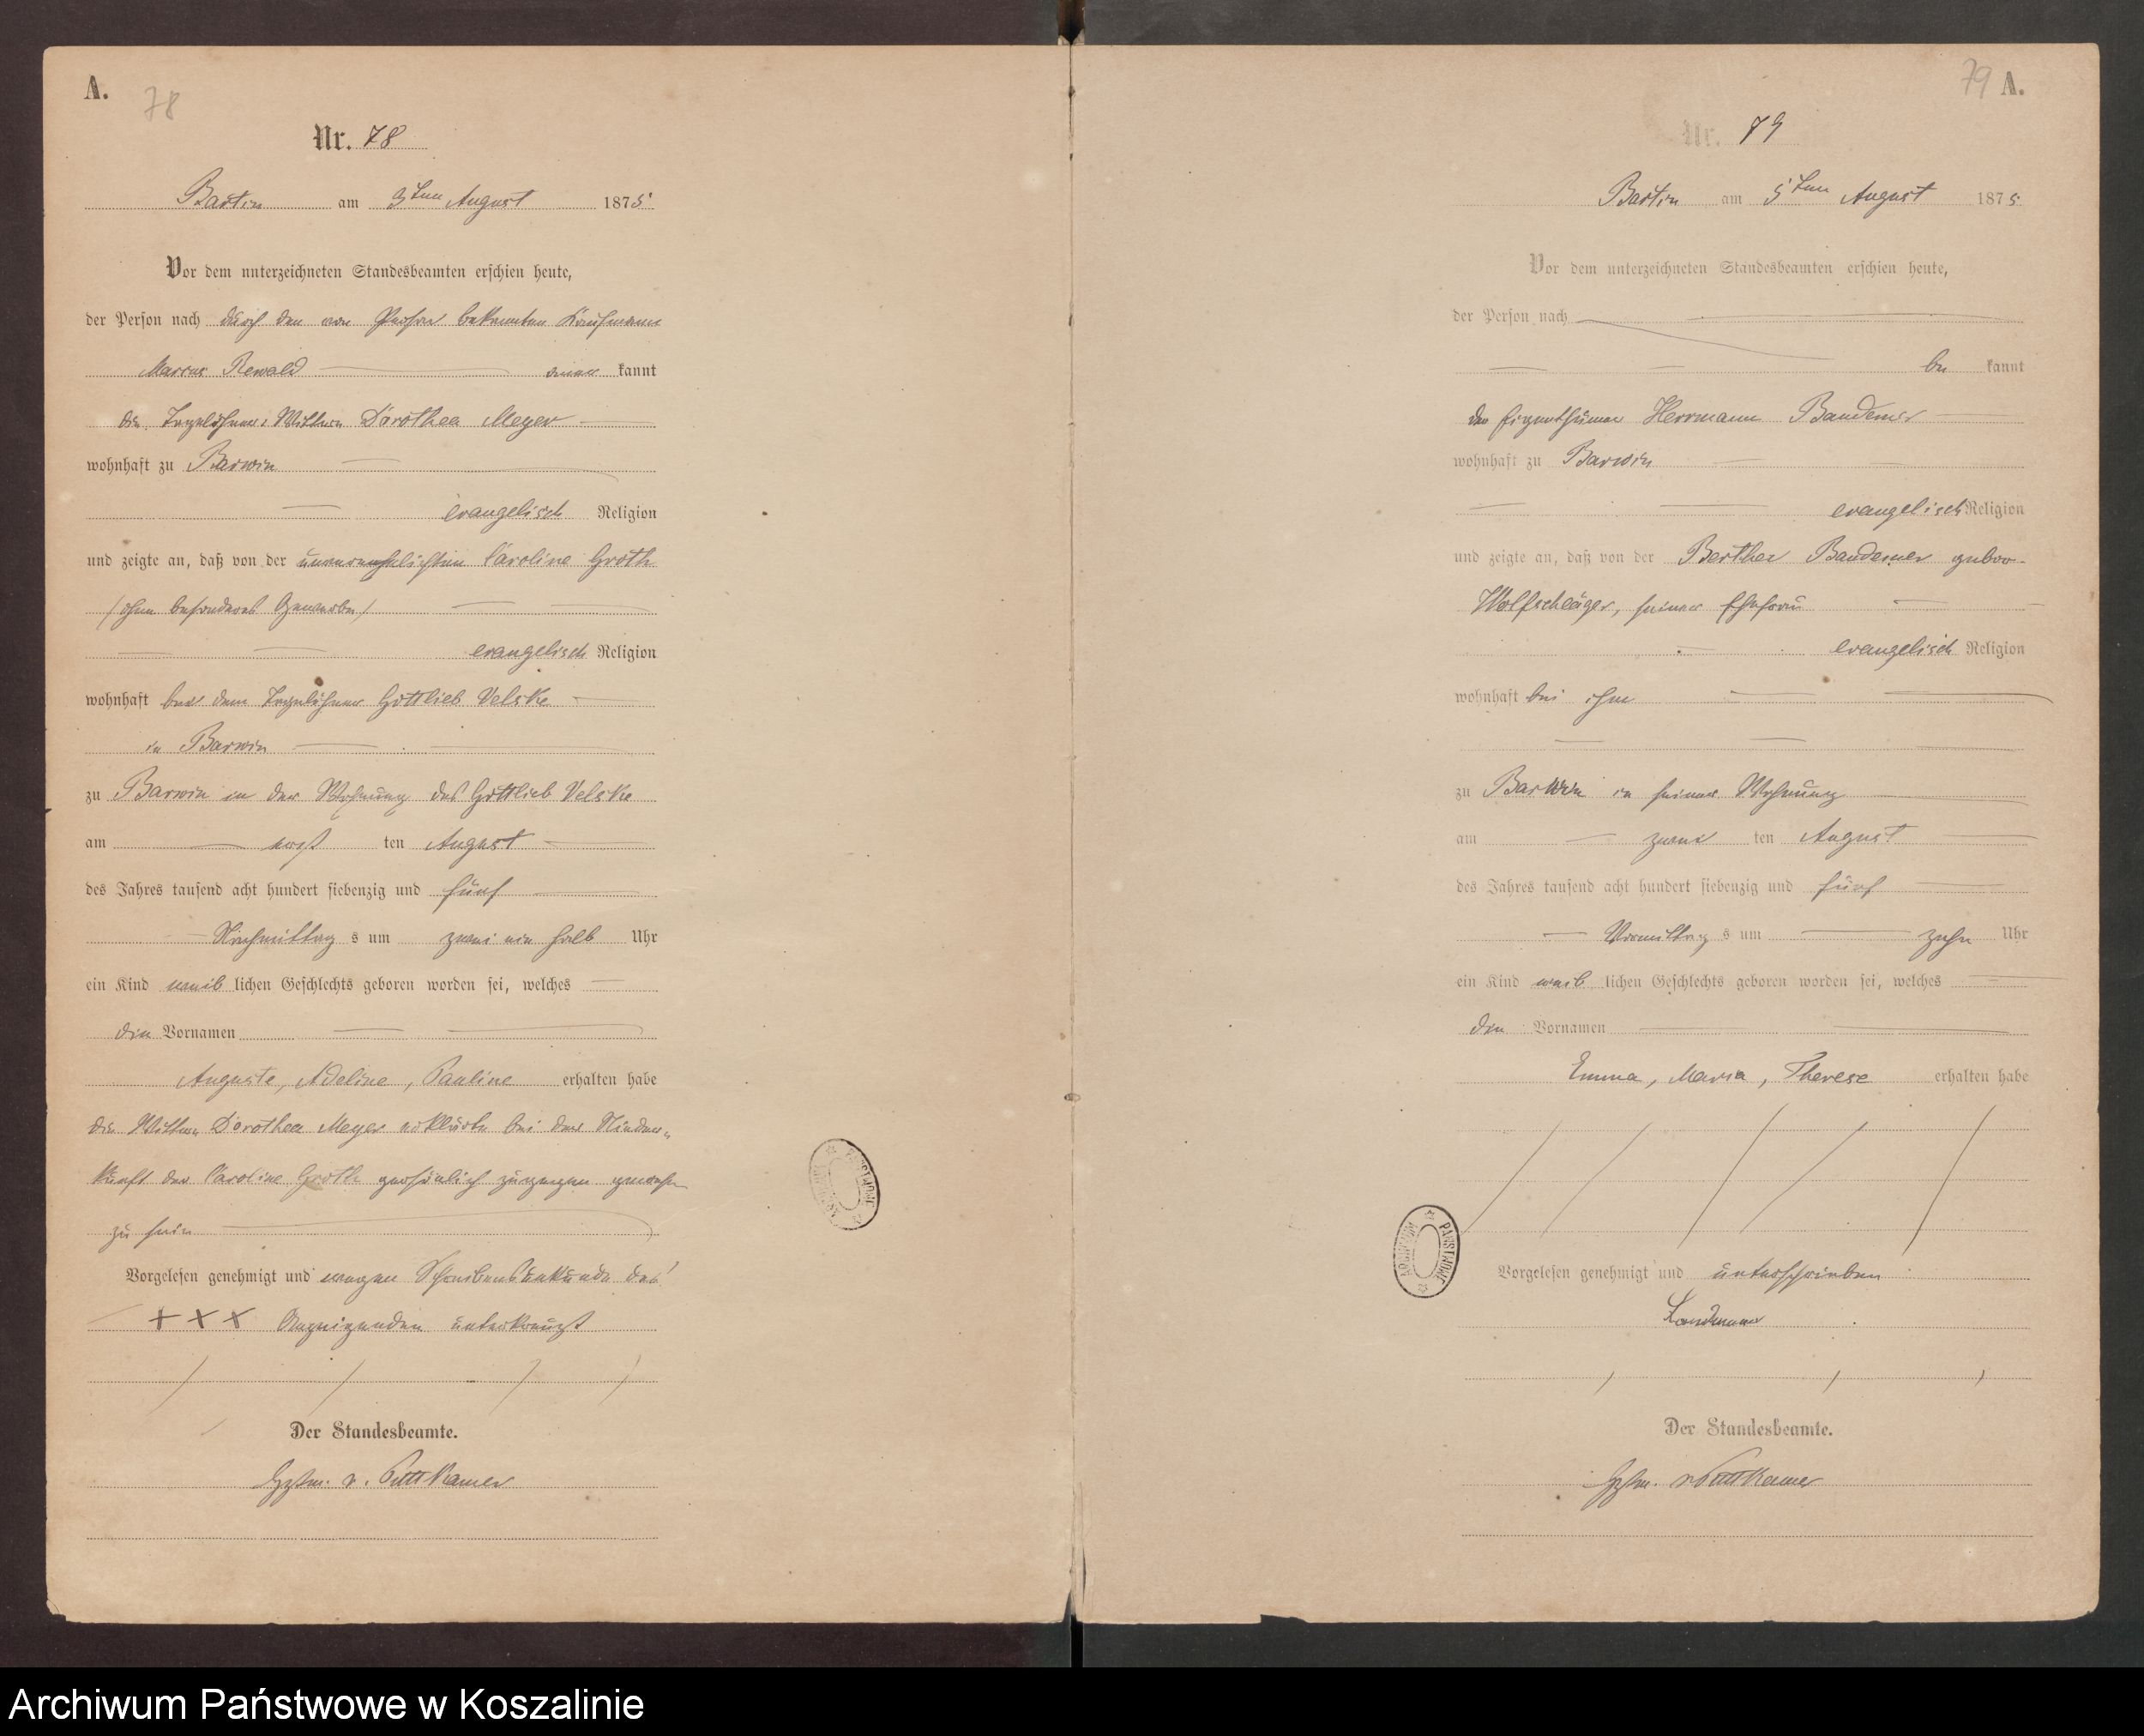 A.
78
Nr. 78
Bartin am 3ten August 1875
Vor dem unterzeichneten Standesbeamten erschien heute,
der Person nach durch den von Person bekannten Kaufmann
Marcus Rewald kannt
die Tagelöhner Wittwe Dorothea Meyer
wohnhaft zu Barwin
evangelisch Religion
und zeigte an, daß von der unverehelichten Caroline Groth
(ohne besonderes Gewerbe)
evangelisch Religion
wohnhaft bei dem Tagelöhner Gottlieb Velske
in Barwin
zu Barwin in der Wohnung des Gottlieb Velske
am erst ten August
des Jahres tausend acht hundert siebenzig und fünf
Nachmittag s um zwei ein halb Uhr
ein Kind weib lichen Geschlechts geboren worden sei, welches
die Vornamen
Auguste, Adeline, Pauline erhalten habe
die Wittwe Dorothea Meyer erklärte bei der Nieder-
kunft der Caroline Groth persönlich zugegen gewesen
zu sein
Vorgelesen genehmigt und wegen Schreibensunkunde der
+ + + Anzeigenden unterkreuzt
Der Standesbeamte.
v. Puttkamer
ARCHIWUM PAŃSTWOWE
79 A.
Nr. 79
Bartin am 5ten August 1875
Vor dem unterzeichneten Standesbeamten erschien heute,
der Person nach
be kannt
der Eigenthümer Herrmann Bandemer
wohnhaft zu Barwin
evangelisch Religion
und zeigte an, daß von der Berthe Bandemer gebor-
Wolfschläger, seiner Ehefrau
evangelisch Religion
wohnhaft bei ihm
zu Barwin in seiner Wohnung
am zwei ten August
des Jahres tausend acht hundert siebenzig und fünf
Vormittag s um zehn Uhr
ein Kind weib lichen Geschlechts geboren worden sei, welches
die Vornamen
Emma, Maria, Therese erhalten habe
ARCHIWUM PAŃSTWOWE
Vorgelesen genehmigt und unterschrieben
Der Standesbeamte.
v Puttkamer
Archiwum Państwowe w Koszalinie